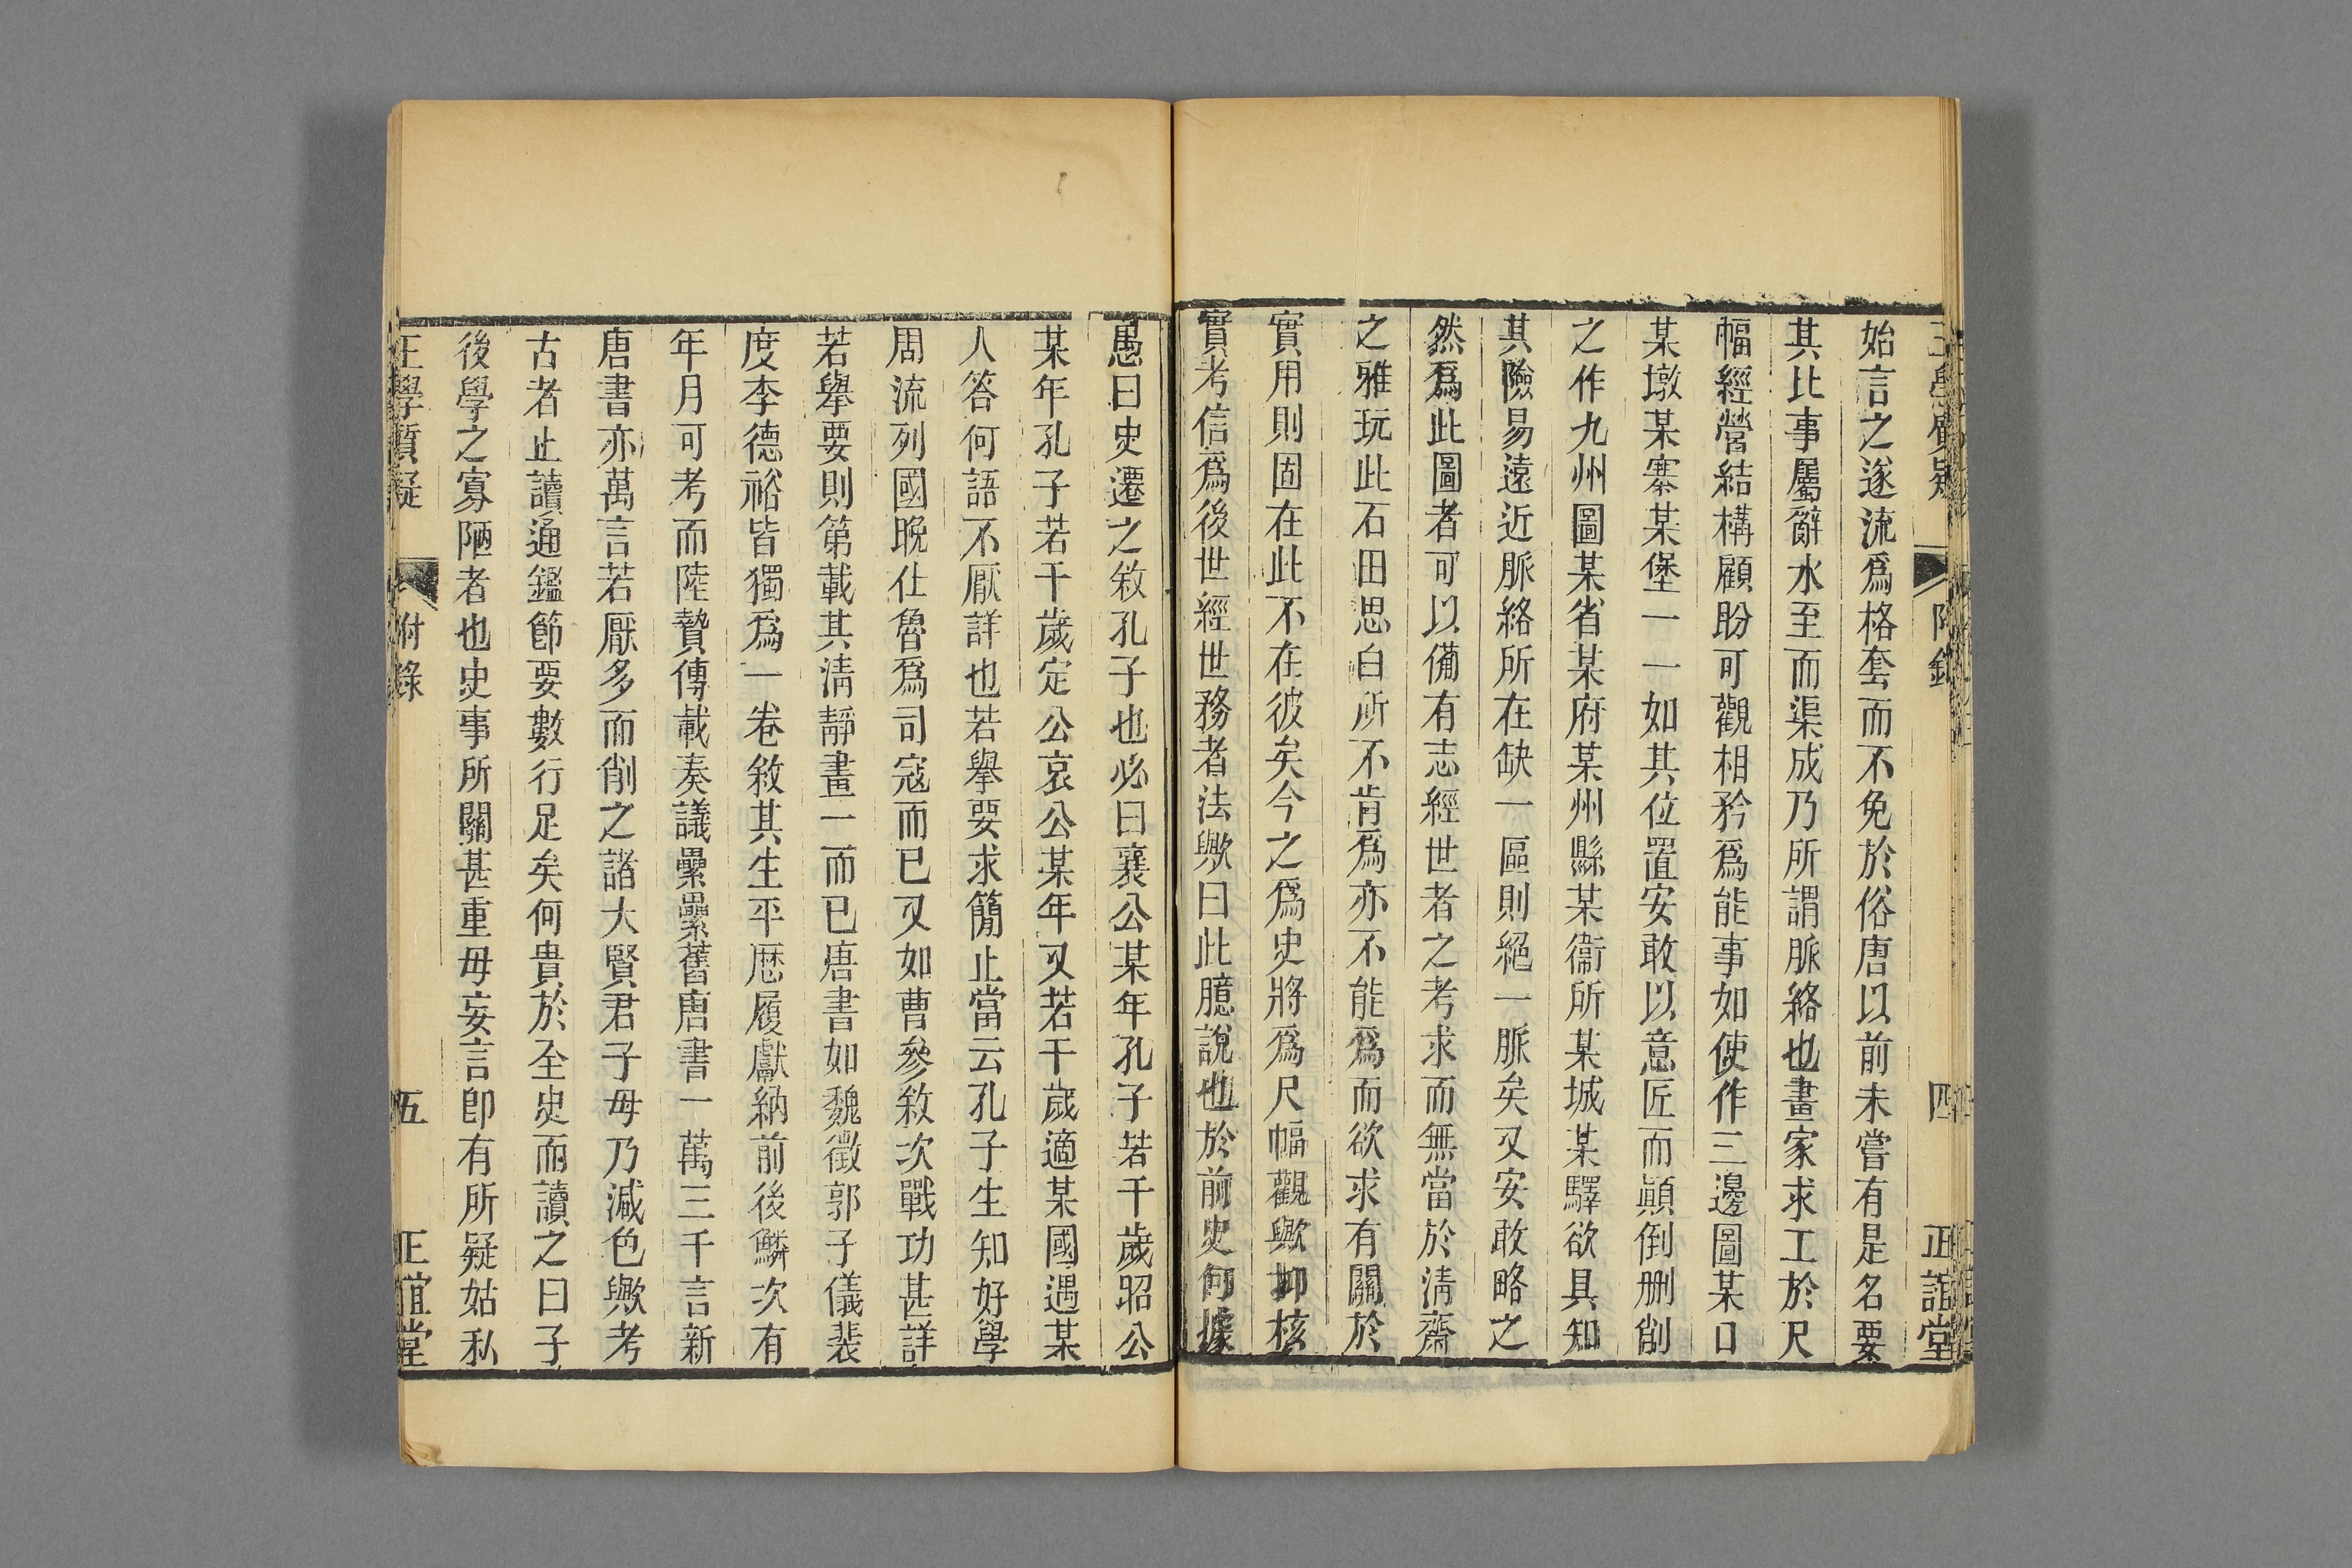 正學質疑 附錄 四 正誼堂
始言之遂流爲格套而不免於俗唐以前未嘗有是名要
其比事屬辭水至而渠成乃所謂脈絡也畫家求工於尺
幅經營結構顧盼可觀相矜爲能事如使作三邊圖某口
某墩某寨某堡一一如其位置安敢以意匠而顚倒删削
之作九州圖某省某府某州縣某衞所某城某驛欲具知
其險易遠近脈絡所在缺一區則絕一脈矣又安敢略之
然爲此圖者可以備有志經世者之考求而無當於淸齋
之雅玩此石田思白所不肯爲亦不能爲而欲求有關於
實用則固在此不在彼矣今之爲史將爲尺幅觀歟抑核
實考信爲後世經世務者法歟曰此臆說也於前史何據
愚曰史遷之敘孔子也必曰襄公某年孔子若干歲昭公
某年孔子若干歲定公哀公某年又若干歲適某國遇某
人答何語不厭詳也若舉要求簡止當云孔子生知好學
周流列國晚仕魯爲司寇而已又如曹參敘次戰功甚詳
若舉要則第載其淸靜畫一而已唐書如魏徵郭子儀裴
度李德裕皆獨爲一卷敘其生平歷履獻納前後鱗次有
年月可考而陸贄傳載奏議纍纍舊唐書一萬三千言新
唐書亦萬言若厭多而削之諸大賢君子毋乃減色歟考
古者止讀通鑑節要數行足矣何貴於全史而讀之曰子
後學之寡陋者也史事所關甚重毋妄言卽有所疑姑私
正學質疑 附錄 五 正誼堂